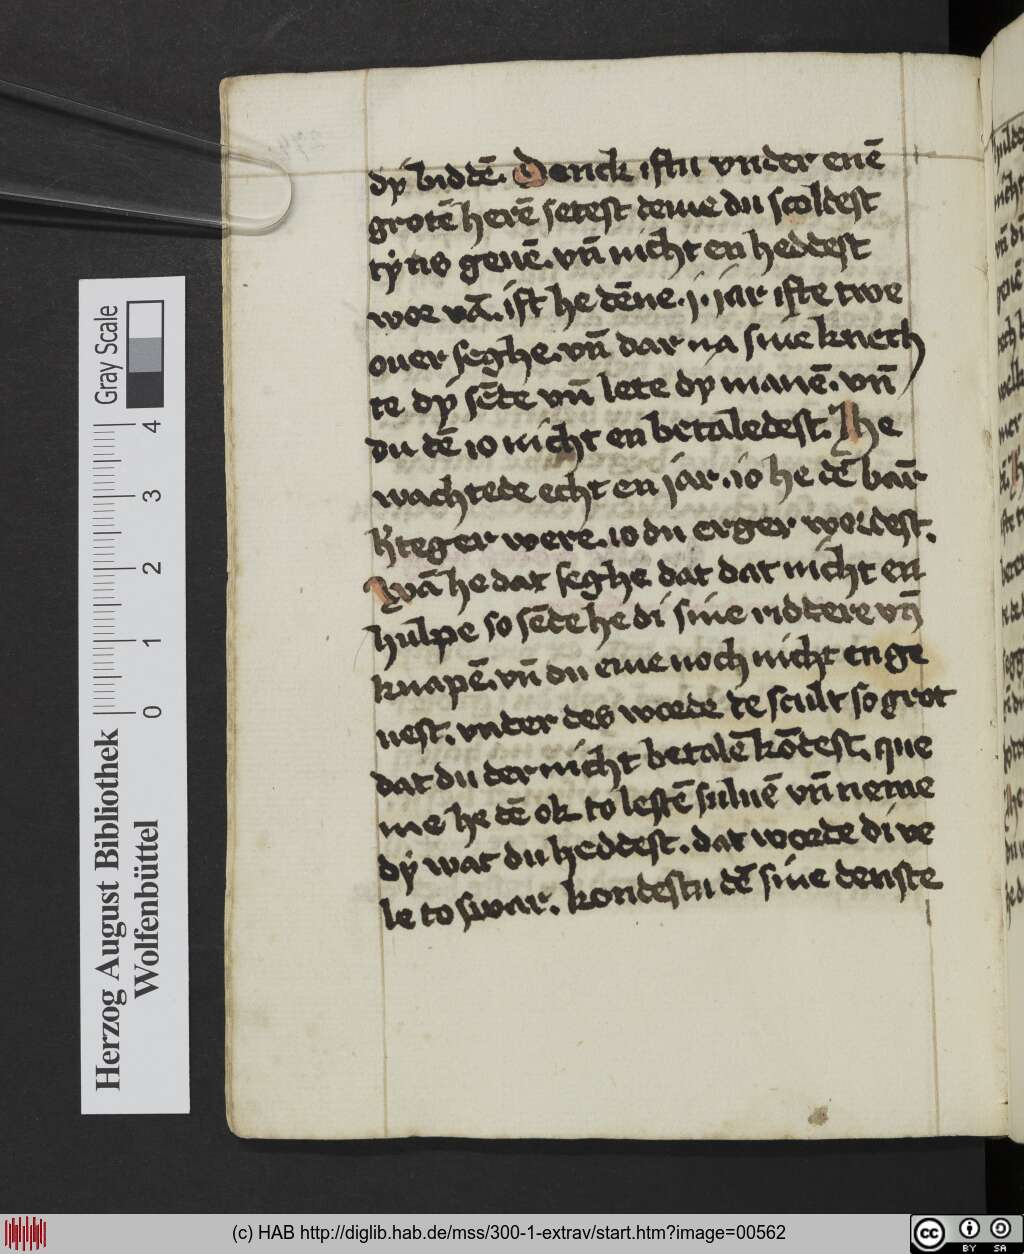 dÿ biddē. Denck iftu vnder enē
grotē herē setest deme du scoldest
tÿns geuē. vn̄ nicht en heddest
wor vā. ift he dēne .j. jar ifte twe
ouer seghe. vn̄ dar na sine knech
te dÿ sēde vn̄ lete dÿ manē. vn̄
du dē io nicht en betaledest. He
wachtede echt en jar. io he dē bar̄
hteger were. io du erger wordest.
wā he dat seghe dat dat nicht en
hulpe so sēde he di sine riddere vn̄
knapē. vn̄ du eme noch nicht en ge
uest. vnder des worde de scult so grot
dat du der nicht betalē kōdest. que
me he dē ok to lestē suluē vn̄ neme
dÿ wat du heddest. dat worde di ve
le to swar. kondestu dē sine denste
Herzog August Bibliothek
Wolfenbüttel
0 1 2 3 4
Gray Scale
(c) HAB http://diglib.hab.de/mss/300-1-extrav/start.htm?image=00562
cc BY SA